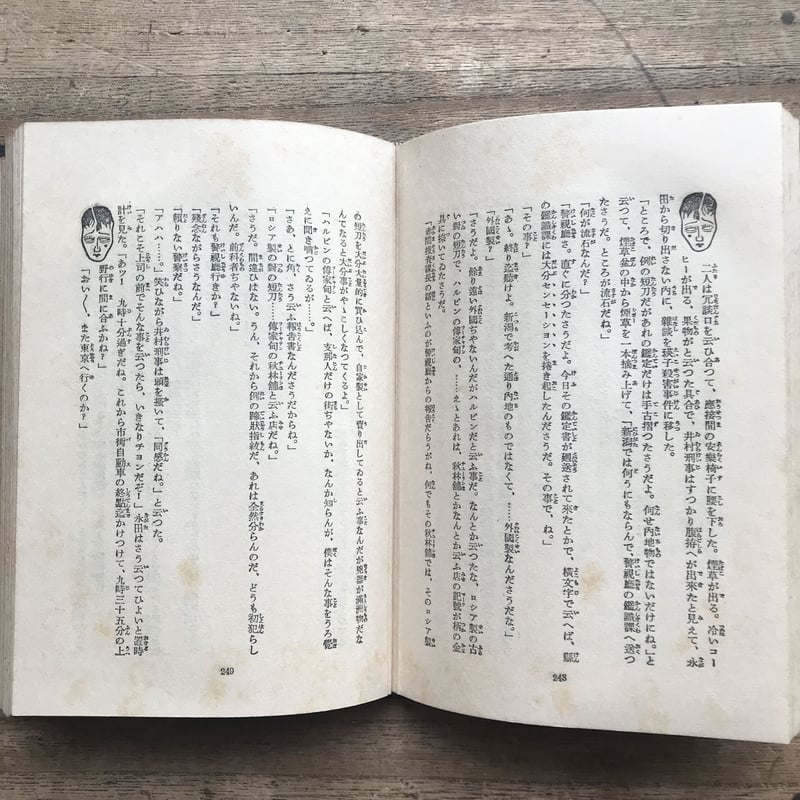 二人は冗談口を云ひ合つて、應接間の安樂椅子に腰を下した。煙草が出る。冷いコー
ヒーが出る。果物がと云つた具合で、井村刑事はすつかり腹拵へが出來たと見えて、永
田から切り出さない内に、雜談を瑛子殺害事件に移した。
「ところで、例の短刀だがあれの鑑定だけは手古摺つたさうだよ。何せ内地物ではないだけにね。」と
云つて、煙草盆の中から煙草を一本摘み上げて、「新潟では何うにもならんで、警視廳の鑑識課へ送つ
たさうだ。ところが流石だね。」
「何が流石なんだ？」
「警視廳さ。直ぐに分つたさうだよ。今日その鑑定書が廻送されて來たとかで、橫文字で云へば、縣
の鑑識課には大分センセーションを捲き起したんださうだ。その事で、ね。」
「その事？」
「あゝ。終ひ迄聽けよ。新潟で考へた通り内地のものではなくて、……外國製なんださうだな。」
「外國製？」
「さうだよ。餘り遠い外國ぢやないんだがハルピンだと云ふ事だ。なんとか云つたな、ロシア製の古
い對の短刀で、ハルピンの傳家甸の、……えゝとあれは、秋林舗とかなんとか云ふ店の記號が柄の金
具に捺いてゐたさうだ。
「赤間捜査課長の話といふのが警視廳からの報告だらうがね、何でもその秋林舗では、そのロシア製
248
の短刀を大分大量的に買ひ込んで、自家製として賣り出してゐると云ふ事なんだが兇器が滿洲物だな
んてなると大分事がやゝこしくなつてくるよ。」
「ハルピンの傳家甸と云へば、支那人だけの街ぢやないか、なんか知らんが、僕はそんな事をうろ覺
えに聞き噛つてゐるが……。」
「さあ、とに角、さう云ふ報告書なんださうだからね。」
「ロシア製の對の短刀……傳家甸の秋林舗と云ふ店だね。」
「さうだ。間違ひはない。うん、それから例の蹄狀指紋だ、あれは全然分らんのだ、どうも初犯らし
いんだ。前科者ぢやないね。」
「それも警視廳行きか？」
「殘念ながらさうなんだ。」
「賴りない警察だね。」
「アハハ……。」笑ひながら井村刑事は頭を搔いて、「同感だね。」と云つた。
「それこそ上司の前でそんな事を云つたら、いきなりチョンだぞ！」永田はさう云つてひよいと置時
計を見た。「あツ！　九時十分過ぎだね。これから市街自動車の終點迄かけつけて、九時三十五分の上
野行に間に合ふかね？」
「おい〱、また東京へ行くのか？」
249